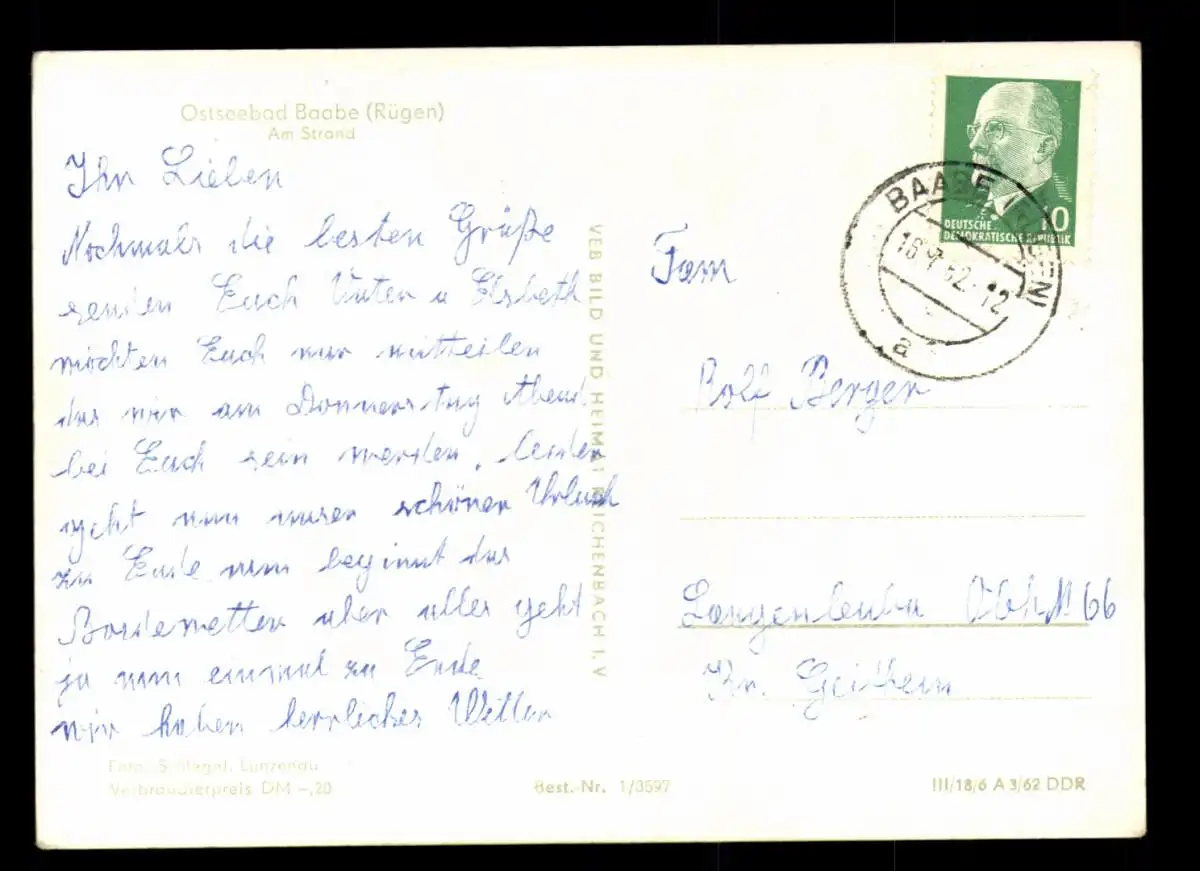 Ostseebad Baabe (Rügen)
Am Strand
Ihr Lieben
Nochmals die besten Grüße
senden Euch Vater u Elsbeth
möchten Euch nur mitteilen
das wir am Donnerstag Abend
bei Euch sein werden, leider
geht nun unser schöner Urlaub
zu Ende nun beginnt das
Badewetter aber alles geht
ja nun einmal zu Ende
wir haben herrliches Wetter
Foto: Schlegel, Lunzenau
Verbraucherpreis DM -,20
Best.-Nr. 1/3597
VEB BILD UND HEIMAT REICHENBACH I. V
DEUTSCHE
DEMOKRATISCHE REPUBLIK
10
BAABE (RÜGEN)
16.7.62-12
a
Fam
Rolf Berger
Langenleuba Obh N 66
Kr. Geithein
III/18/6 A 3/62 DDR